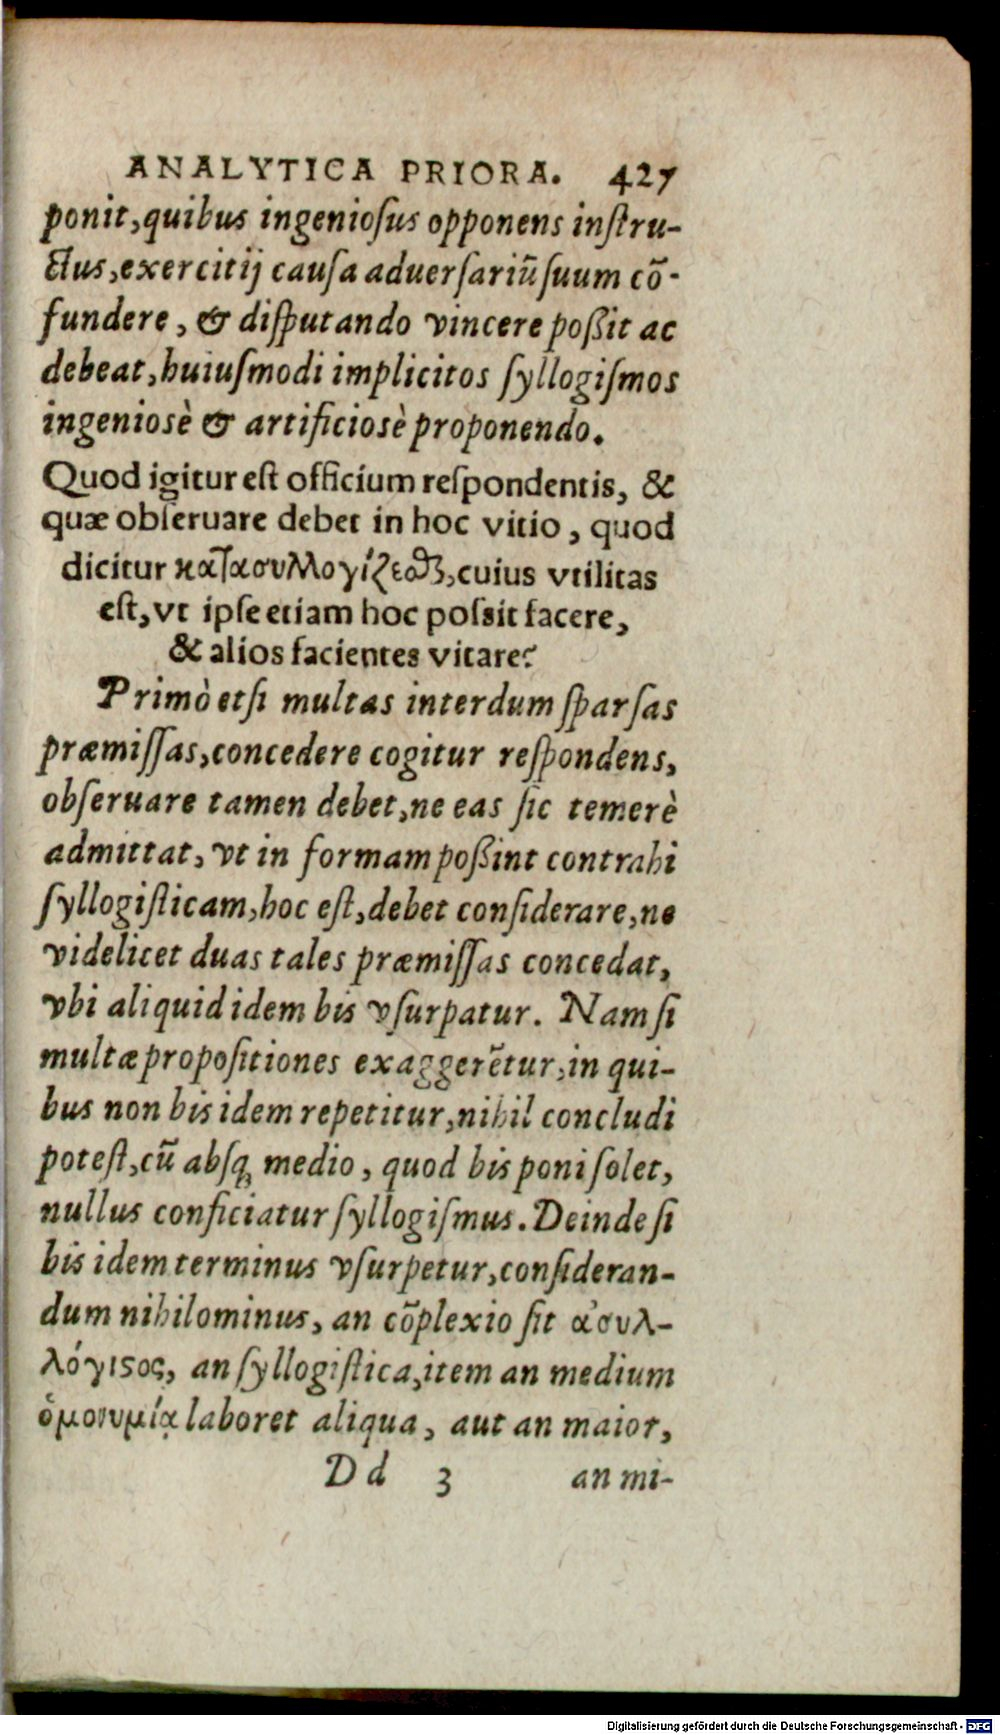 ANALYTICA PRIORA. 427
ponit, quibus ingeniosus opponens instru-
ctus, exercitij causa aduersariū suum cō-
fundere, & disputando vincere poßit ac
debeat, huiusmodi implicitos syllogismos
ingeniosè & artificiosè proponendo.
Quod igitur est officium respondentis, &
quæ obseruare debet in hoc vitio, quod
dicitur κατασυλλογίζεσθαι, cuius vtilitas
est, vt ipse etiam hoc possit facere,
& alios facientes vitare?
Primò etsi multas interdum sparsas
præmissas, concedere cogitur respondens,
obseruare tamen debet, ne eas sic temerè
admittat, vt in formam poßint contrahi
syllogisticam, hoc est, debet considerare, ne
videlicet duas tales præmissas concedat,
vbi aliquid idem bis vsurpatur. Nam si
multæ propositiones exaggerētur, in qui-
bus non bis idem repetitur, nihil concludi
potest, cū absq; medio, quod bis poni solet,
nullus conficiatur syllogismus. Deinde si
bis idem terminus vsurpetur, consideran-
dum nihilominus, an cōplexio sit ἀσυλ-
λόγιϛος, an syllogistica, item an medium
ὁμονυμίᾳ laboret aliqua, aut an maior,
D d 3 an mi-
Digitalisierung gefördert durch die Deutsche Forschungsgemeinschaft - DFG